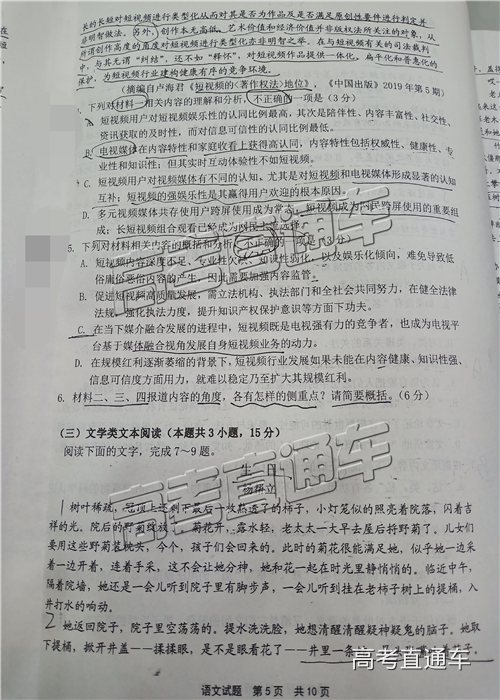 长的长短对短视频进行类型化从而对其是否为作品及是否满足原创性要件进行判定并
非明智做法。另外，创作本无高低，艺术价值和经济价值并非版权法所关注的对象，从
所谓创作高度的角度对短视频进行类型化亦非明智之举。在与短视频有关的司法裁判
中，与其无谓“纠结”，还不如“释怀”，对短视频作品提供一体化、扁平化和普惠化的
保护，为短视频行业建构健康有序的竞争环境。
（摘编自卢海君《短视频的〈著作权法〉地位》，《中国出版》2019年第5期）
下列对材料一相关内容的理解和分析，不正确的一项是（3分）
短视频用户对短视频娱乐性的认同比例最高，其次是陪伴性、内容丰富性、社交性、
资讯获取的及时性，而对信息可信性的认同比例最低。
B. 电视媒体在内容特性和家庭收看上获得高认同，内容特性包括权威性、健康性、专
业性和知识性；但其实时互动体验性不如短视频。
C. 短视频用户对视频媒体有不同的认知，尤其是对短视频和电视媒体形成显著的认知
互补；短视频的强娱乐性是其赢得用户欢迎的根本原因。
D. 多元视频媒体共存使用户跨屏使用成为常态，短视频成为网民跨屏使用的重要组
成；长短视频组合观看已经成为网民主流选择。
5. 下列对材料相关内容的概括和分析，不正确的一项是（3分）
A. 短视频内容深度不足、专业性欠缺、知识性弱化，以及娱乐化倾向，难免导致低
俗庸俗恶俗内容的产生，因此需要加强内容监管。
B. 促进短视频高质量发展，需立法机构、执法部门和全社会共同努力，在健全法律
法规、强化执法力度，提升知识产权保护意识等方面下功夫。
C. 在当下媒介融合发展的进程中，短视频既是电视强有力的竞争者，也成为电视平
台基于媒体融合视角发展自身短视频业务的动力。
D. 在规模红利逐渐萎缩的背景下，短视频行业发展如果未能在内容健康、知识性强、
信息可信度方面用力，就难以稳定乃至扩大其规模红利。
6. 材料二、三、四报道内容的角度，各有怎样的侧重点？请简要概括。（6分）
（三）文学类文本阅读（本题共3小题，15分）
阅读下面的文字，完成7～9题。
生 日
杨邪立
树叶稀疏，冠顶上还剩下最后一枚熟透了的柿子，小灯笼似的照亮着院落，闪着吉
祥的光。院后的野菊绽放了。菊花开，露水轻，老太太一大早去屋后将野菊了。儿女们
要用这些野菊装枕头，今个，孩子们会回来的。此时的菊花很能满足她，似乎她一边采
着一边开着，连着手采，这不会让她分神，她和花一起在时光里静悄悄的。临近中午，
隔着院墙，她还是一会儿听到院子里有脚步声，一会儿听到挂在老柿子树上的提桶，入
井打水的响动。
2 她返回院子，院子里空荡荡的。提水洗洗脸，她想清醒清醒疑神疑鬼的脑子。她取
下提桶，掀开井盖——揉揉眼，是不是眼看花了——井里一条
语文试题 第5页 共10页
高考直通车
高考直通车
高考直通车